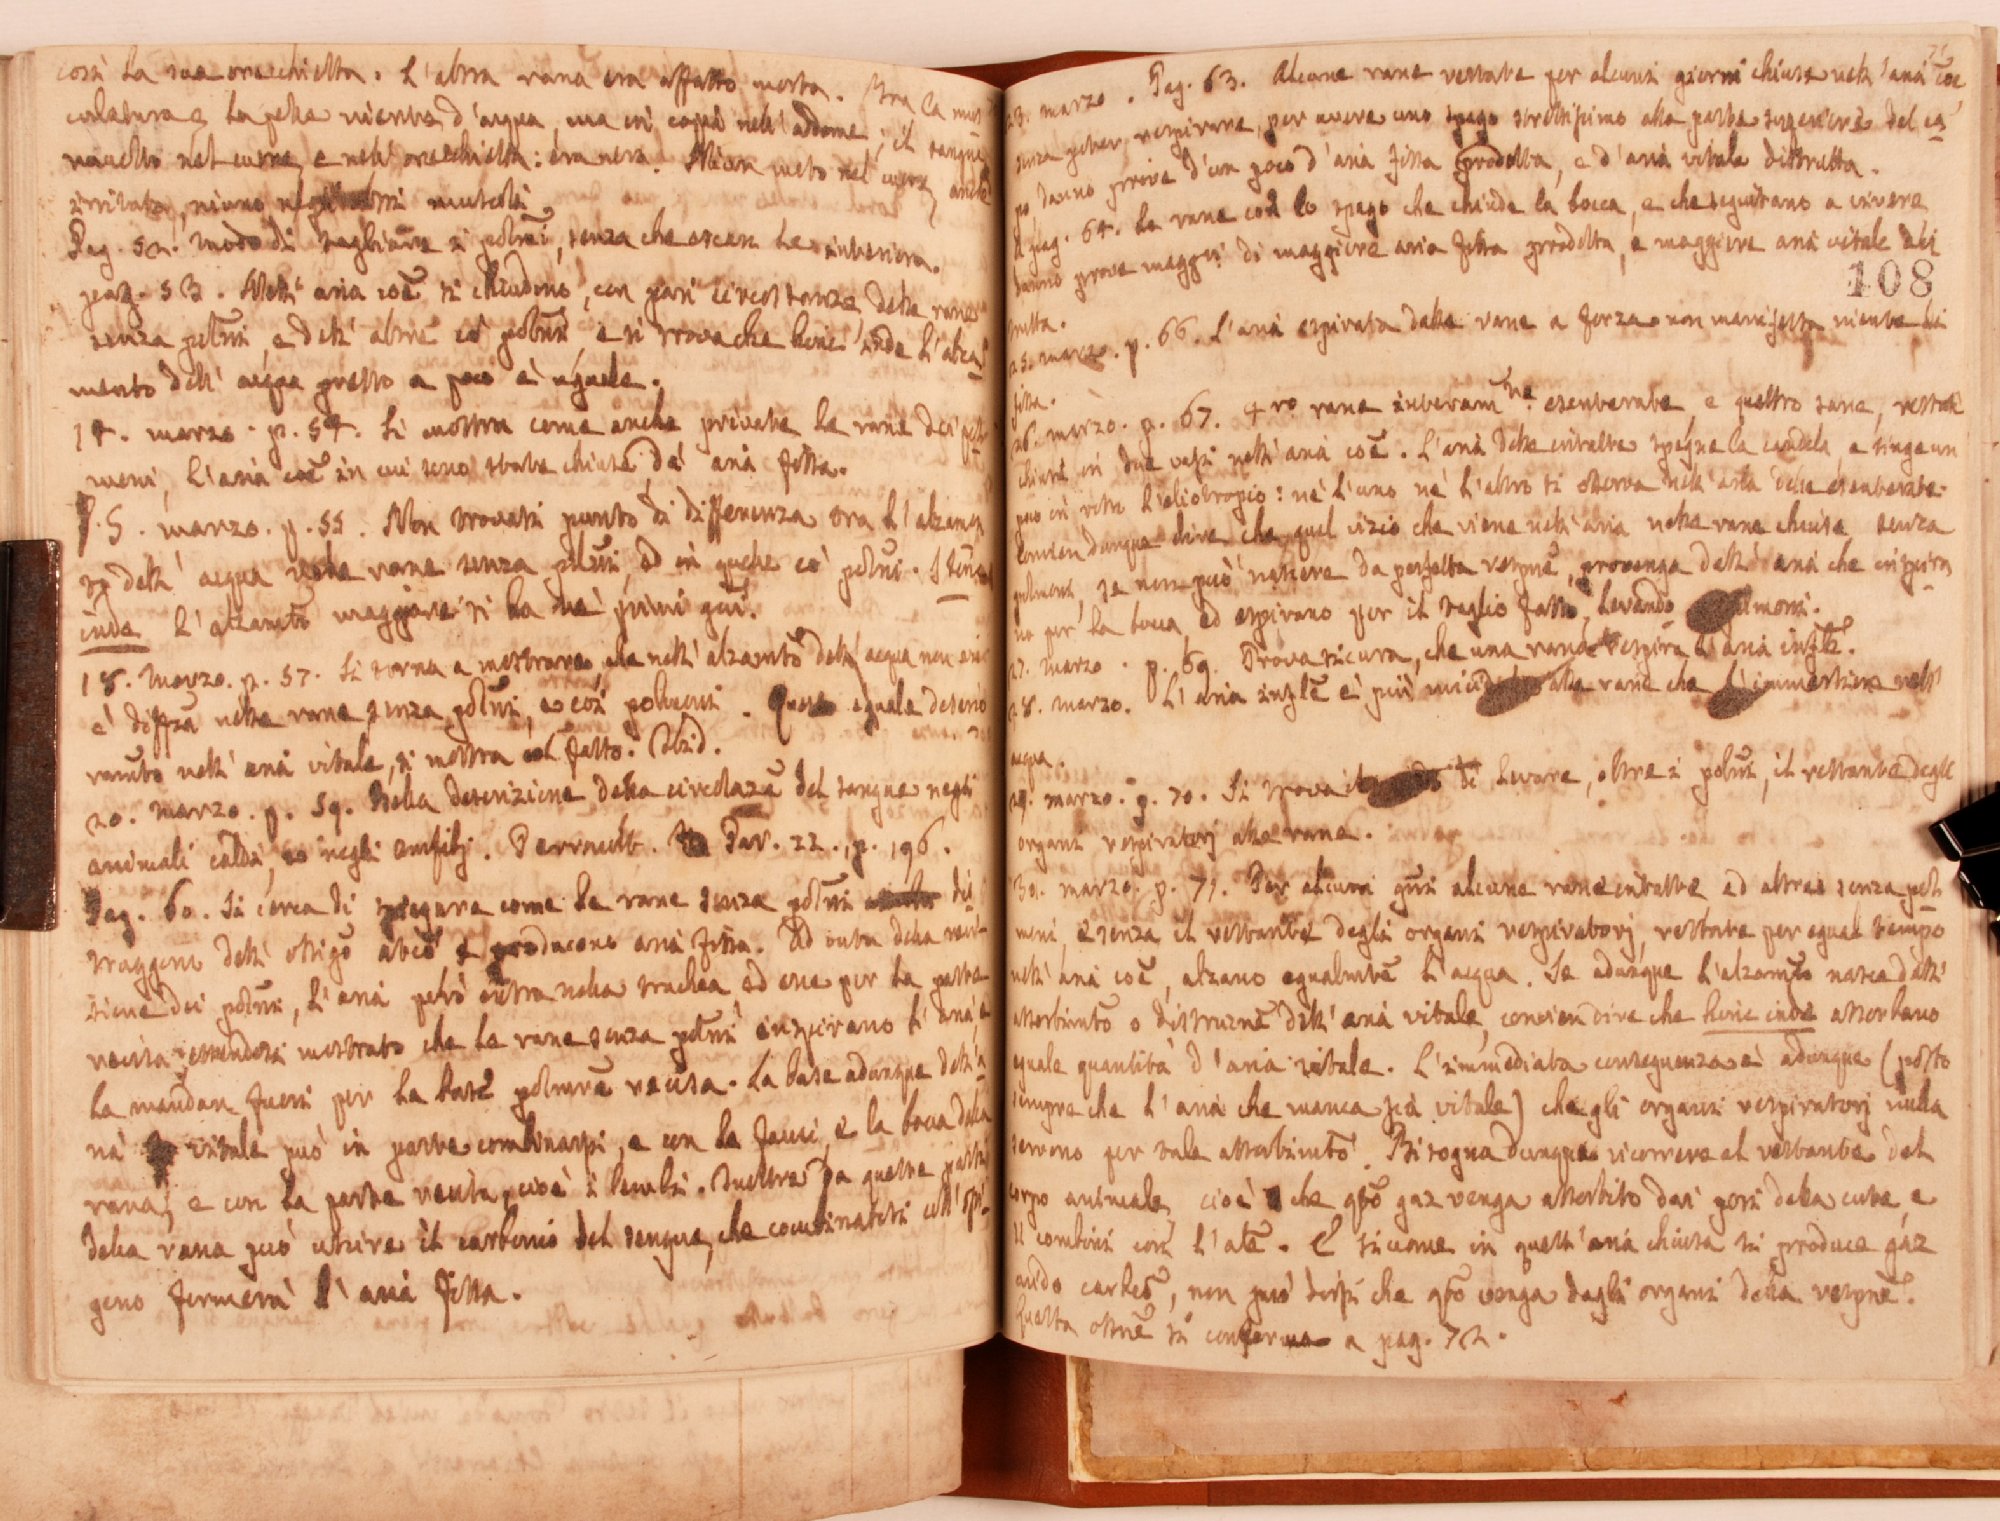 così la sua orecchietta. L'altra rana era affatto morta. Tra la mus
colatura e la pelle niente d'acqua, ma in copia nell'addome; il sangue
raccolto nel cuore e nell'orecchietta: era nero. Niun moto nel cuore anche
irritato, niuno negli altri muscoli.
Pag. 52. Modo di tagliare i polmi, senza che escan le interiora.
pag. 53. Nell'aria coẽ si chiudono, con pari circostanze delle rane
senza polmi, e dell'altre co' polmi, e si trova che hinc inde l'alza
mento dell'acqua presso a poco è uguale.
14. marzo. p. 54. Si mostra come anche private le rane dei pol
moni, l'aria coẽ in cui sono state chiuse, dà aria fissa.
15. marzo. p. 55. Non trovasi punto di differenza tra l'alzamen
to dell'acqua nelle rane senza polmi, ed in quelle co' polmi.
inde l'alzamto maggiore si ha ne' primi gni.
18. Marzo. p. 57. Si torna a mostrare, che nell'alzamto dell'acqua non
è diffza nelle rane senza polmi, e coi polmoni. Questo eguale
nell'aria vitale, si mostra col fatto. Ibid.
20. marzo. p. 59. Bella descrizione della circolazẽ del sangue negli
animali caldi, e negli amfibj. Perrault. Par. 22. p. 196.
Pag. 60. Si cerca di spiegare come le rane senza polmi dis
truggono dell' e producono aria fissa. Ad onta della reci
sione dei polmi, l'aria però entra nella trachea ed esce per la parte
recisa, essendosi mostrato che le rane senza polmi inspirano l'aria, e
la mandan fuori per la parte polmare recisa. La base adunque dell'a
ria vitale può in parte combinarsi, e con le fauci, e la bocca della
rana, e con la parte recisa, cioè i lembi. Inoltre da queste parti
della rana può uscire il carbonio del sangue, che combinatosi coll'ossi
geno formerà l'aria fissa.
23. marzo. Pag. 63. Alcune rane restate per alcuni giorni chiuse nell'aria coẽ
senza poter respirare, per avere uno spago strettissimo alla parte superiore del ca
po, danno prove d'un poco d'aria fissa prodotta, e d'aria vitale distrutta.
A pag. 64. Le rane con lo spago che chiude la bocca, e che seguitano a vivere
danno prove maggri di maggiore aria fissa prodotta, e maggiore aria vitale dis
108
trutta.
25. marzo. p. 66. L'aria espirata dalle rane a forza non manifesta niente di
fissa.
26. marzo. p. 67. 4ro rane interamtne esenterate, e quattro sane, restate
chiuse in due vasi nell'aria coẽ. L'aria delle intatte spegne la candela, e tinge un
poco in rosso l'eliotropio: nè l'uno nè l'altro si osserva nell'aria delle esenterate.
Convien dunque dire, che quel vizio che viene nell'aria nelle rane chiuse senza
polmoni, se non può nascere da perfetta respne, provenga dell'aria che inspira
no per la bocca, ed espirano per il taglio fatto, levando polmoni.
27. marzo. p. 69. Prova sicura, che una rana respira l'aria
28. marzo. L'aria è più micidiale alle rane che l'immersione nell'
acqua.
29. marzo. p. 70. Si trova di levare, oltre i polmi, il restante degli
organi respiratorj alle rane.
30. marzo. p. 71. Per alcuni gni alcune rane intatte ed altre senza pol
moni, e senza il restante degli organi respiratorj, restate per egual tempo
nell'aria coẽ, alzano egualmte l'acqua. Se adunque l'alzamto nasce dall'
assorbimto o distruznẽ dell'aria vitale, convien dire che hinc inde assorbano
eguale quantità d'aria vitale. L'immediata conseguenza è adunque (posto
sempre che l'aria che manca sia vitale) che gli organi respiratorj nulla
servono per tale assorbimto. Bisogna dunque ricorrere al restante del
corpo animale, cioè che qto gaz venga assorbito dai pori della cute, e
si combini con l'alte. E siccome in quest'aria chiusa si produce gaz
acido carbco, non può dirsi che qto venga dagli organi della respne.
Questa ossnẽ si conferma a pag. 72.